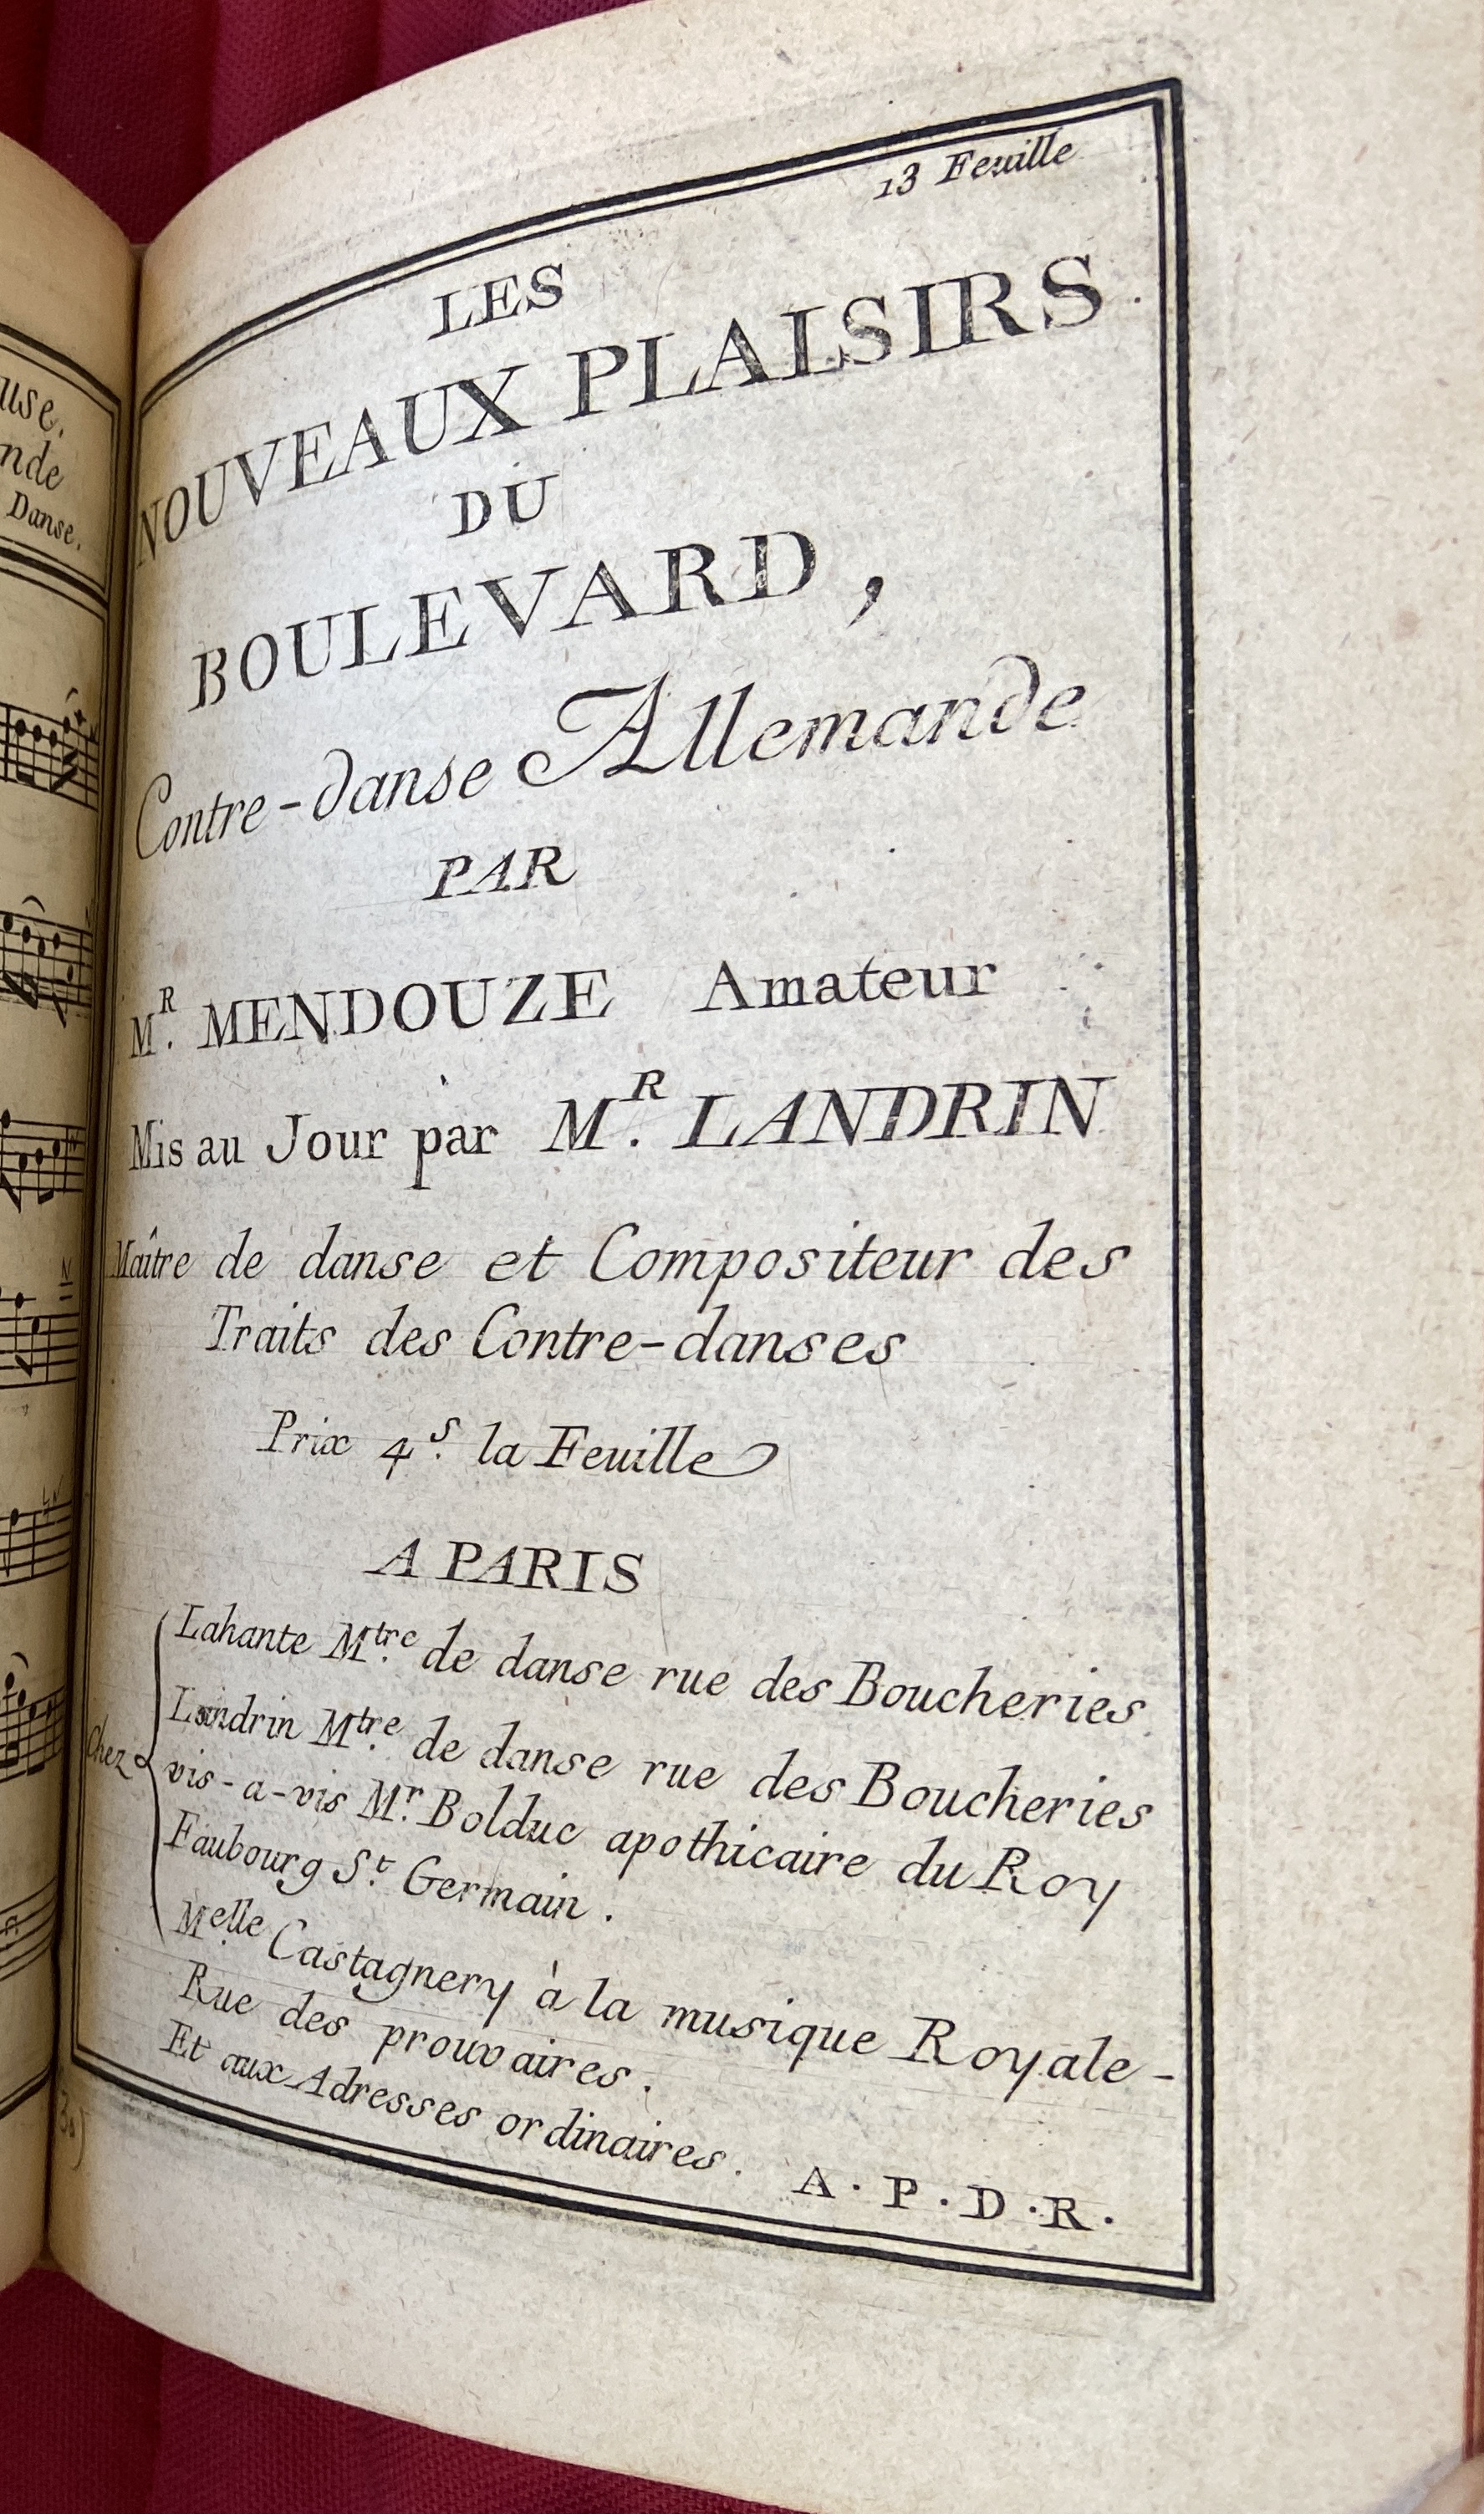 use.
nde
Danse.
13 Feuille
LES
NOUVEAUX PLAISIRS
DU
BOULEVARD,
Contre-danse Allemande
PAR
M.R MENDOUZE Amateur
Mis au Jour par M.R LANDRIN
Maître de danse et Compositeur des
Traits des Contre-danses
Prix 4.s la Feuille
A PARIS
Chez
Lahante M.tre de danse rue des Boucheries
Landrin M.tre de danse rue des Boucheries
vis-a-vis M.r Bolduc apothicaire du Roy
Faubourg S.t Germain.
M.elle Castagnery à la musique Royale-
Rue des prouvaires.
Et aux Adresses ordinaires. A.P.D.R.